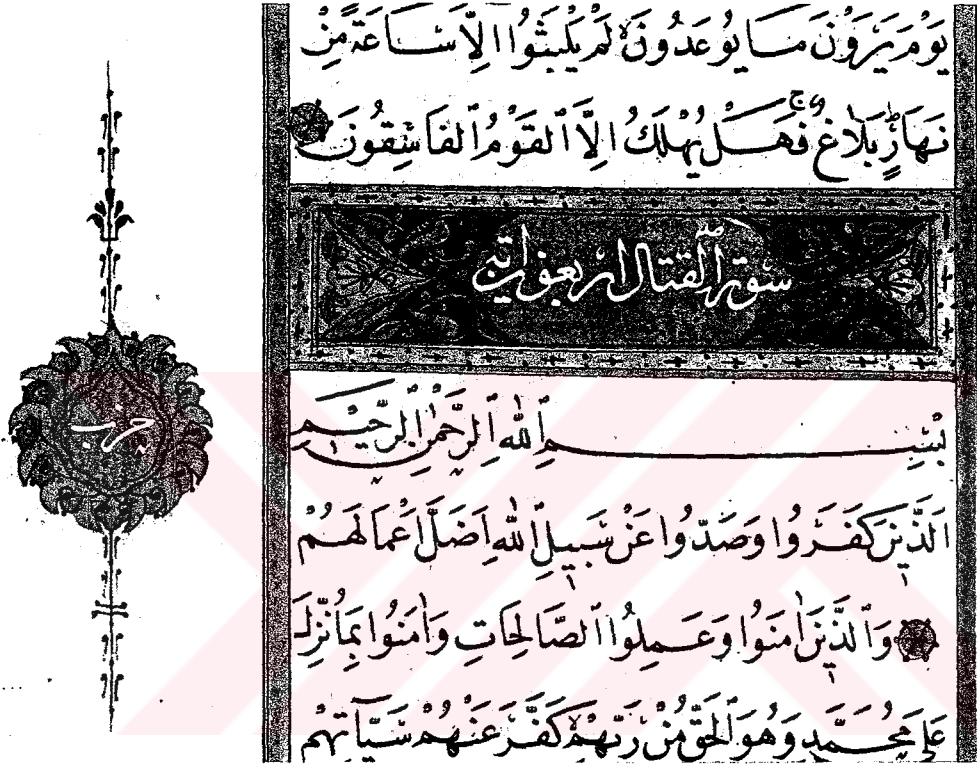 يَوْمَ يَرَوْنَ مَا يُوعَدُونَ لَمْ يَلْبَثُوا اِلَّا سَاعَةً مِنْ
نَهَارٍ بَلَاغٌ فَهَلْ يُهْلَكُ اِلَّا الْقَوْمُ الْفَاسِقُونَ
سورة القتال اربعون اية
بِسْمِ اللّٰهِ الرَّحْمٰنِ الرَّحِيمِ
اَلَّذِينَ كَفَرُوا وَصَدُّوا عَنْ سَبِيلِ اللّٰهِ اَضَلَّ اَعْمَالَهُمْ
وَالَّذِينَ اٰمَنُوا وَعَمِلُوا الصَّالِحَاتِ وَاٰمَنُوا بِمَا نُزِّلَ
عَلٰى مُحَمَّدٍ وَهُوَ الْحَقُّ مِنْ رَبِّهِمْ كَفَّرَ عَنْهُمْ سَيِّاٰتِهِمْ
حزب